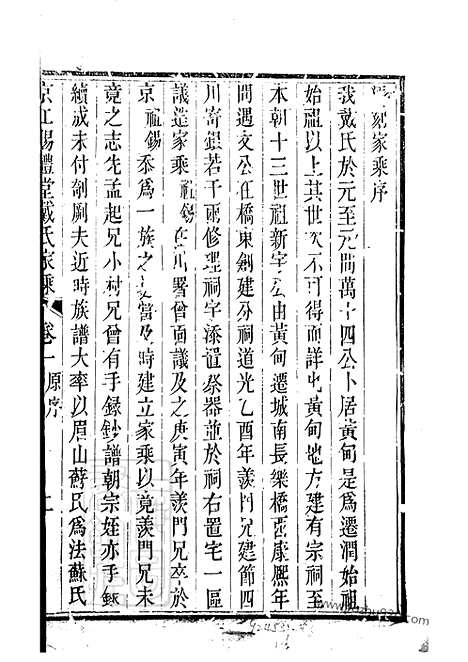 刻家乘序
我戴氏於元至元間萬十四公卜居黃甸是爲遷潤始祖
始祖以上其世次不可得而詳也黃甸地方建有宗祠至
本朝十三世祖新宇公由黃甸遷城南長樂橋西康熙年
間遇文公在橋東創建分祠道光乙酉年羨門兄建節四
川寄銀若干兩修理祠宇添置祭器並於祠右置宅一區
議造家乘祖錫在川署曾議及之庚寅年羨門兄卒於
京祖錫忝爲一族之長當及時建立家乘以竟羨門兄未
竟之志先孟起兄小村兄曾有手錄鈔譜朝宗姪亦手錄
續成未付剞劂夫近時族譜大率以眉山蘇氏爲法蘇氏
京江賜禮堂戴氏家乘
卷一原序
上